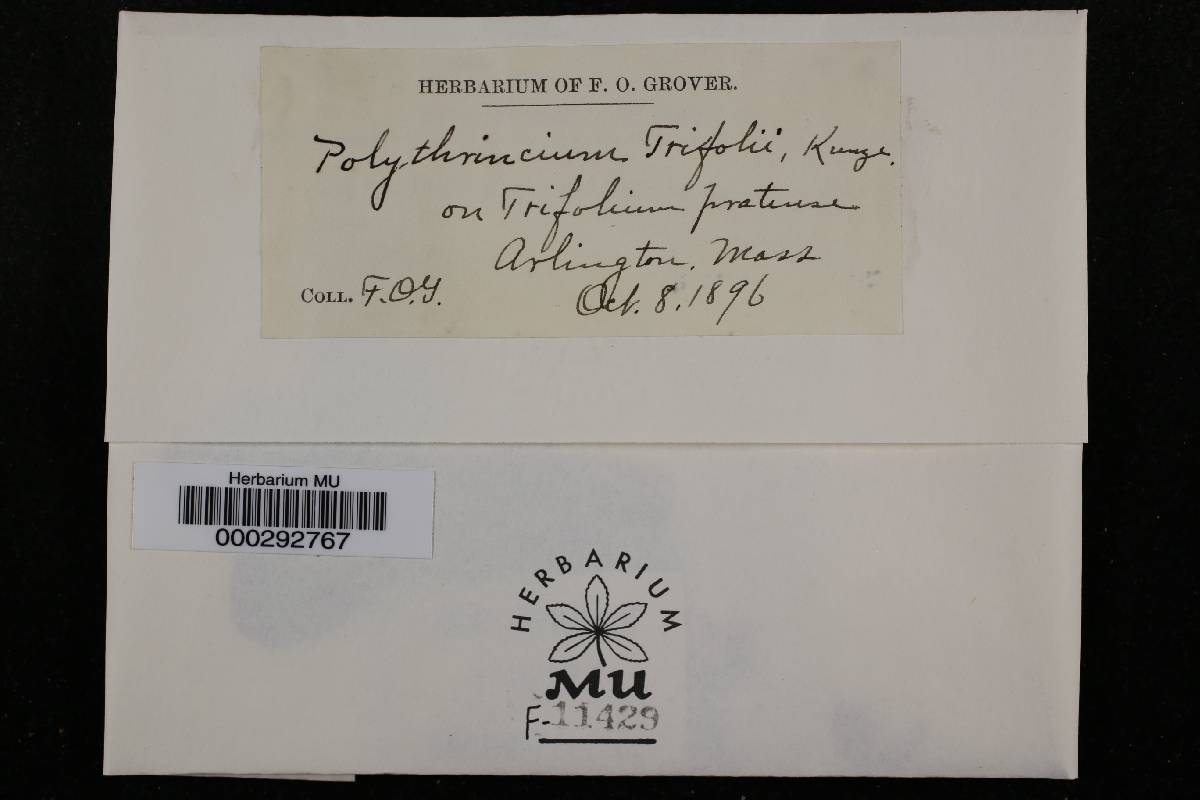 HERBARIUM OF F. O. GROVER.
Polythrincium Trifolii, Kunze.
on Trifolium pratense
Arlington, Mass
COLL. F.O.G. Oct. 8. 1896
Herbarium MU
000292767
HERBARIUM
MU
F-11429